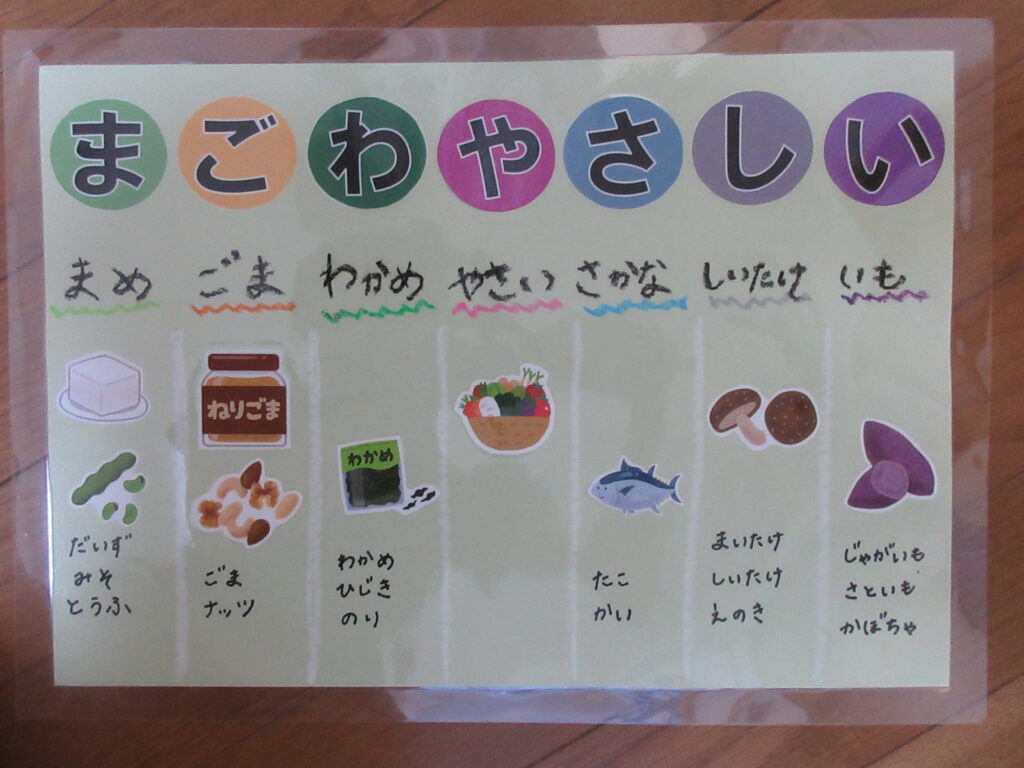 まごわやさしい
まめ ごま わかめ やさい さかな しいたけ いも
ねりごま
わかめ
だいず
みそ
とうふ
ごま
ナッツ
わかめ
ひじき
のり
たこ
かい
まいたけ
しいたけ
えのき
じゃがいも
さといも
かぼちゃ